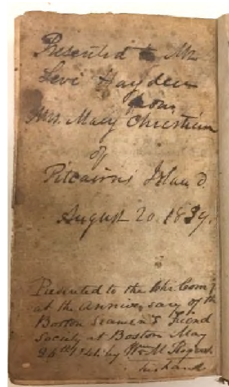 Presented to Mr
Levi Hayden
from
Mrs Mary Christian
of
Pitcairns Island
August 20. 1839.
Presented to the
at the anniversary of the
Boston Seamen's Friend
Society at Boston May
26th by Wm M Rogers